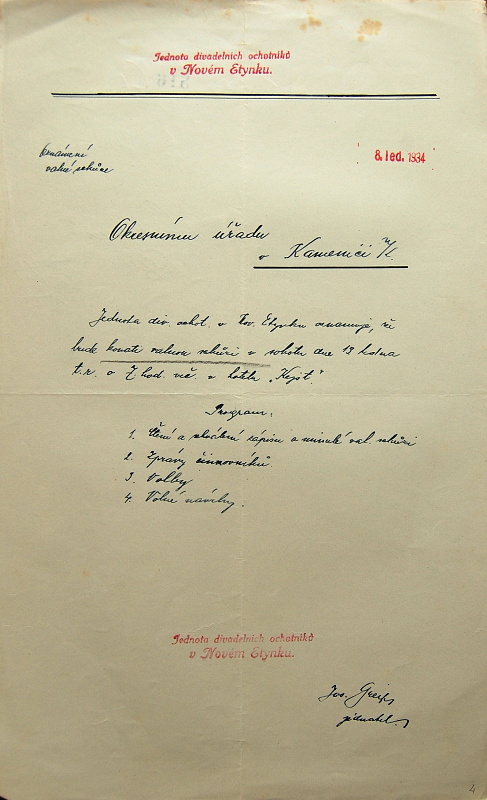 Jednota divadelních ochotníků
v Novém Etynku.
Oznámení
valné schůze
8. led. 1934
Okresnímu úřadu
v Kamenici n/L.
Jednota div. ochot. v Nov. Etynku oznamuje, že
bude konati valnou schůzi v sobotu dne 13 ledna
t.r. o 7 hod. več. v hotelu
Program:
1. Čtení a schválení zápisu o minulé val. schůzi
2. Zprávy činovníků.
3. Volby
4. Volné návrhy.
Jednota divadelních ochotníků
v Novém Etynku.
Jos.
jednatel.
4